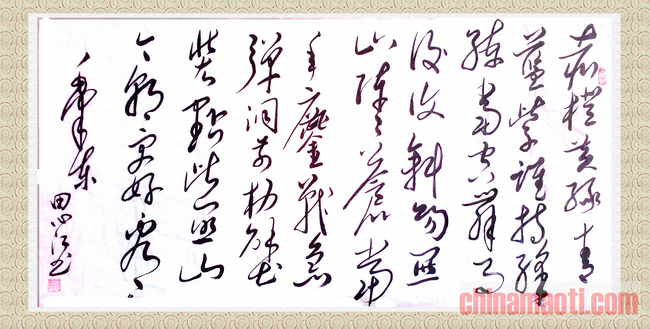 赤橙黄绿青
蓝紫谁持彩
练当空舞雨
後復斜陽関
山阵々苍当
年鏖战急
弹洞前村壁
装點此関山
今朝更好看
毛泽东
田 书
chinamaoti.com